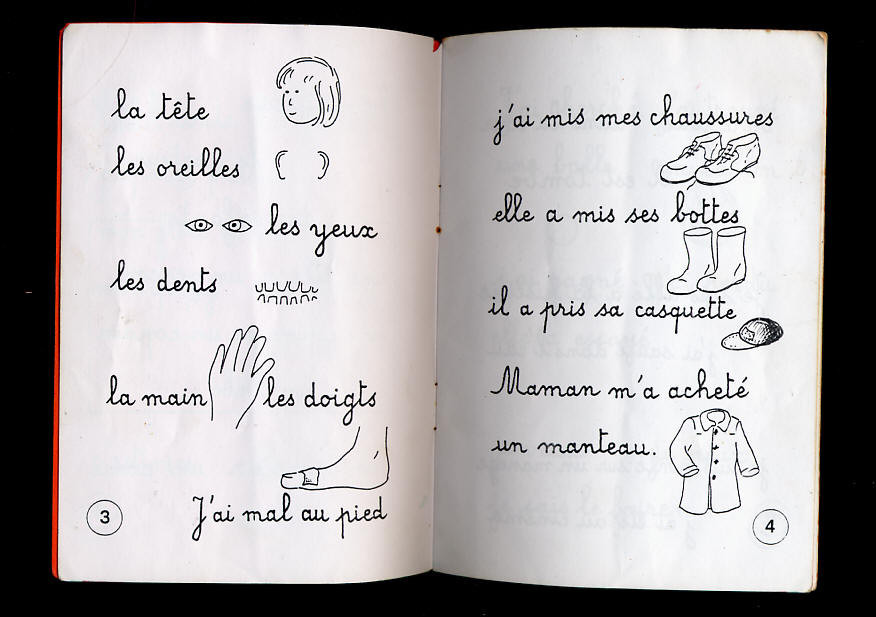 la tête
les oreilles
les yeux
les dents
la main les doigts
J'ai mal au pied
3
j'ai mis mes chaussures
elle a mis ses bottes
il a pris sa casquette
Maman m'a acheté
un manteau.
4